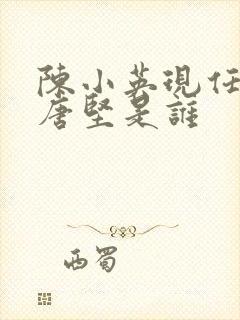 陳小英現任
唐堅是誰
西蜀